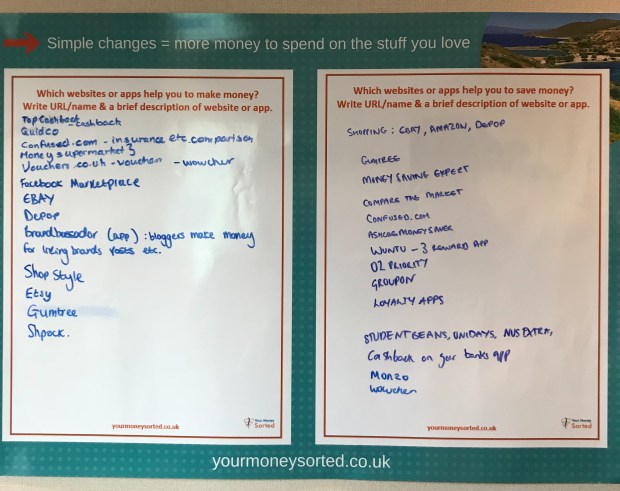 Simple changes = more money to spend on the stuff you love
Which websites or apps help you to make money?
Write URL/name & a brief description of website or app.
TopCashback - cashback
Quidco
Confused.com - insurance etc. comparison
Money supermarket }
Vouchers.co.uk - voucher - wowcher
Facebook Marketplace
EBAY
Depop
brandbassador (app) : bloggers make money
for liking brands posts etc.
Shop Style
Etsy
Gumtree
Shpock.
yourmoneysorted.co.uk
Your Money
Sorted
Which websites or apps help you to save money?
Write URL/name & a brief description of website or app.
SHOPPING : , AMAZON, DEPOP
GUMTREE
MONEY SAVING EXPERT
COMPARE THE MARKET
CONFUSED.COM
WUNTU - 3 REWARD APP
O2 PRIORITY
GROUPON
LOYALTY APPS
STUDENT BEANS, UNIDAYS, NUS EXTRA,
Cashback on your banks app
MONZO
wowcher
yourmoneysorted.co.uk
Your Money
Sorted
yourmoneysorted.co.uk